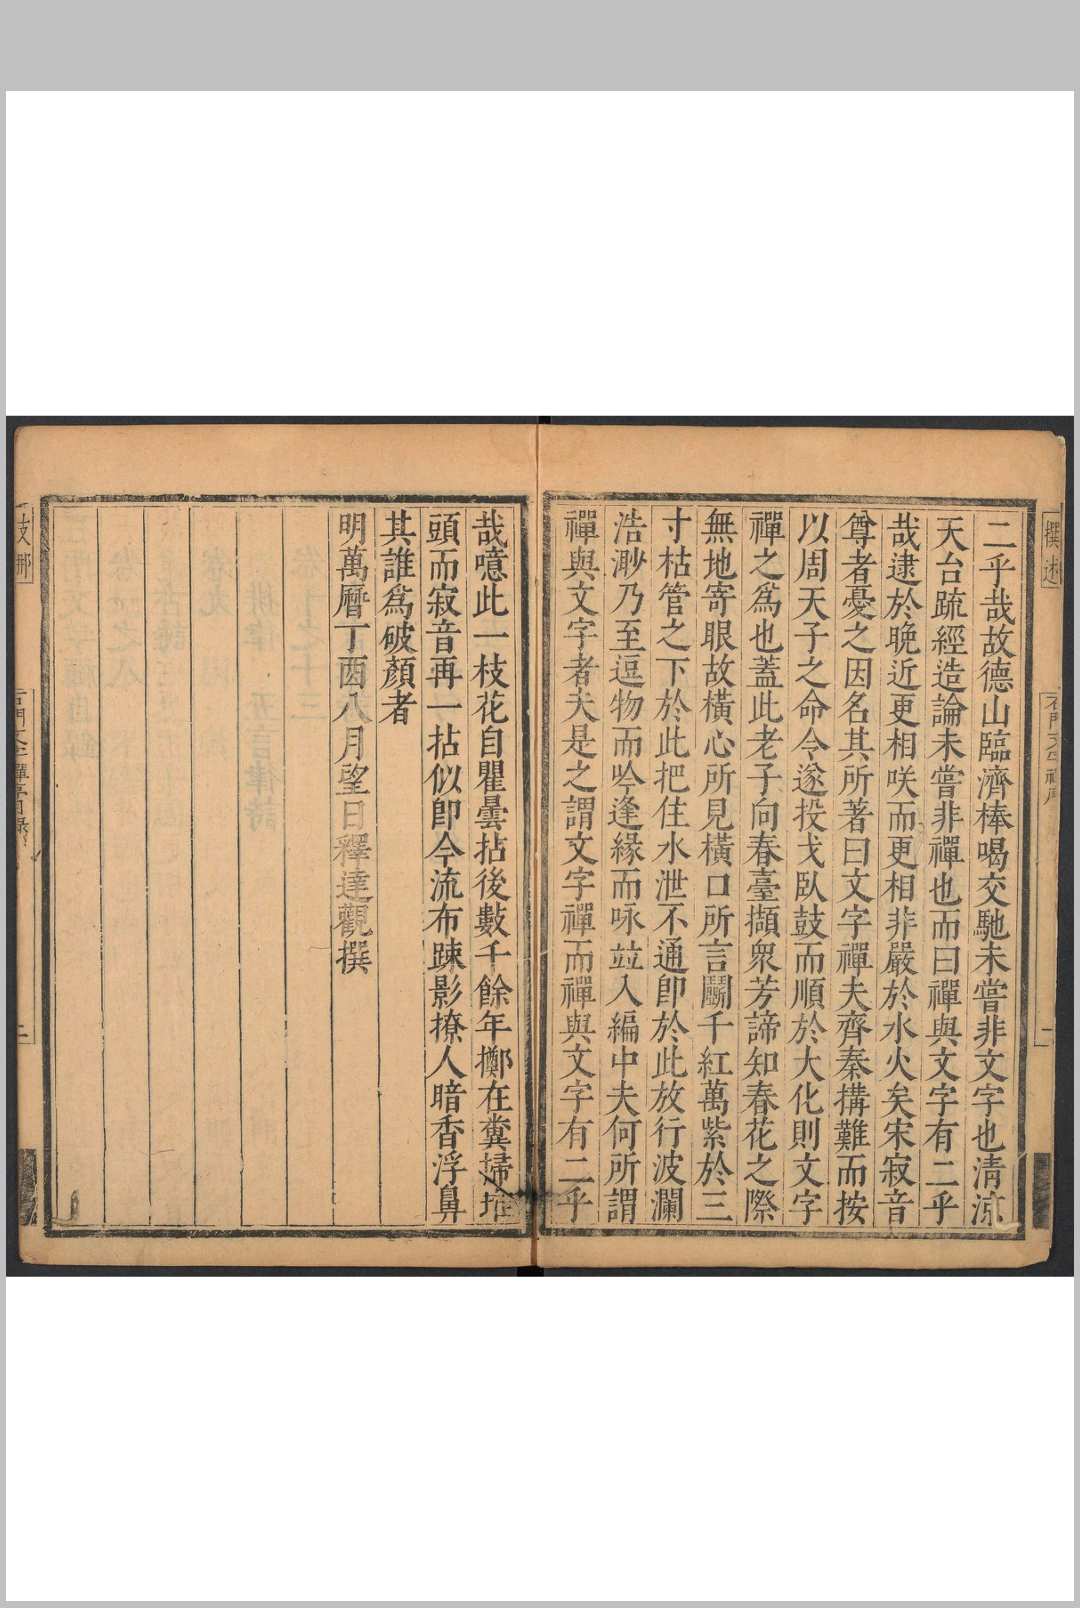 撰述
二乎哉故德山臨濟棒喝交馳未嘗非文字也清涼
天台疏經造論未嘗非禪也而曰禪與文字有二乎
哉逮於晚近更相咲而更相非嚴於水火矣宋寂音
尊者憂之因名其所著曰文字禪夫齊秦搆難而按
以周天子之命令遂投戈臥鼓而順於大化則文字
禪之爲也蓋此老子向春臺擷衆芳諦知春花之際
無地寄眼故橫心所見橫口所言鬭千紅萬紫於三
寸枯管之下於此把住水泄不通卽於此放行波瀾
浩渺乃至逗物而吟逢緣而咏竝入編中夫何所謂
禪與文字者夫是之謂文字禪而禪與文字有二乎
哉噫此一枝花自瞿曇拈後數千餘年擲在糞掃堆
頭而寂音再一拈似卽今流布疎影撩人暗香浮鼻
其誰爲破顏者
明萬曆丁酉八月望日釋達觀撰